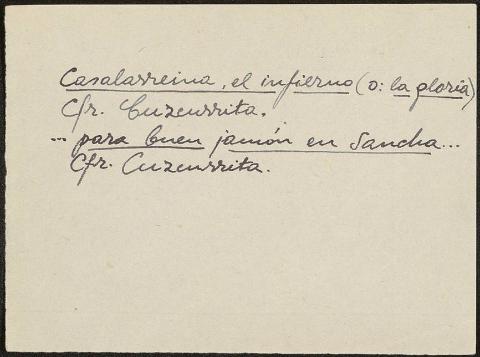 Casalarreina, el infierno (o: la gloria)
Cfr. Cuzcurrita.
... para buen jamón en Sancha...
Cfr. Cuzcurrita.